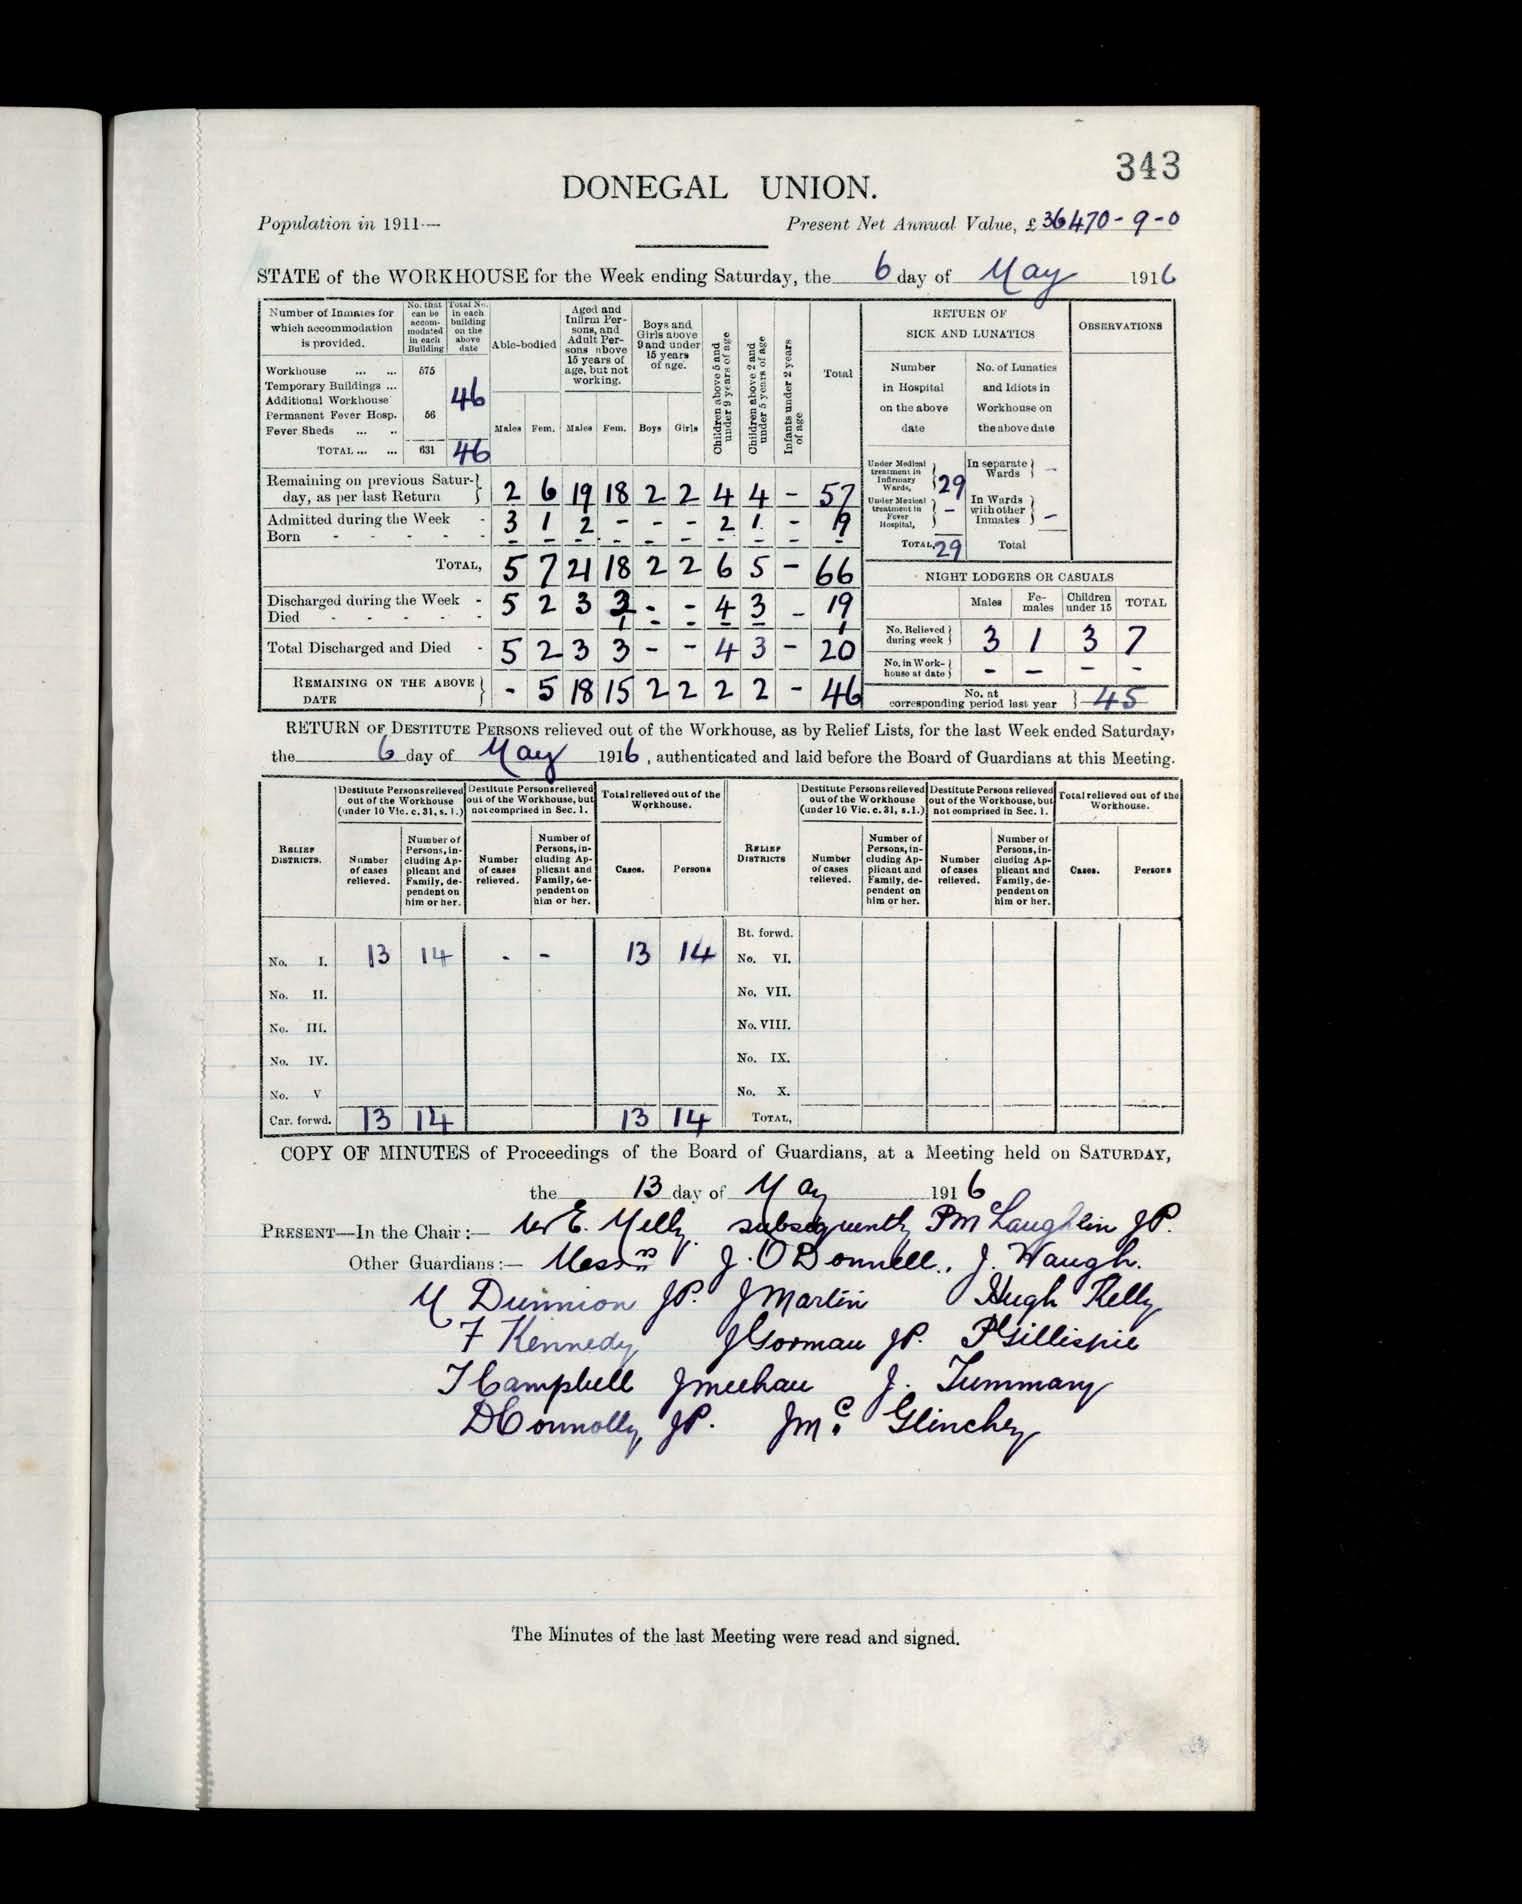 343
DONEGAL UNION.
Population in 1911·— Present Net Annual Value, £36470-9-0
STATE of the WORKHOUSE for the Week ending Saturday, the 6 day of May 1916
Number of Inmates for which accommodation is provided. No. that can be accommodated in each Building Total No. in each building on the above date Able-bodied Aged and Infirm Persons, and Adult Persons above 15 years of age, but not working. Boys and Girls above 9 and under 15 years of age. Children above 5 and under 9 years of age Children above 2 and under 5 years of age Infants under 2 years of age Total RETURN OF SICK AND LUNATICS OBSERVATIONS
Males Fem. Males Fem. Boys Girls
Number in Hospital on the above date No. of Lunatics and Idiots in Workhouse on the above date
Workhouse ... ... 575
Temporary Buildings ... 46
Additional Workhouse
Permanent Fever Hosp. 56
Fever Sheds ... ..
TOTAL ... ... 631 46
Remaining on previous Saturday, as per last Return 2 6 19 18 2 2 4 4 - 57
Admitted during the Week - 3 1 2 - - - 2 1 - 9
Born - - - - - - - - - - - - - - -
TOTAL, 5 7 21 18 2 2 6 5 - 66
Discharged during the Week - 5 2 3 2 - - 4 3 - 19
Died - - - - - 1 - - - - 1
Total Discharged and Died - 5 2 3 3 - - 4 3 - 20
REMAINING ON THE ABOVE DATE - 5 18 15 2 2 2 2 - 46
Under Medical treatment in Infirmary Wards, 29 In separate Wards -
Under Medical treatment in Fever Hospital, - In Wards with other Inmates -
TOTAL, 29 Total
NIGHT LODGERS OR CASUALS
Males Females Children under 15 TOTAL
No. Relieved during week 3 1 3 7
No. in Workhouse at date - - - -
No. at corresponding period last year 45
RETURN OF DESTITUTE PERSONS relieved out of the Workhouse, as by Relief Lists, for the last Week ended Saturday,
the 6 day of May 1916, authenticated and laid before the Board of Guardians at this Meeting.
RELIEF DISTRICTS. Destitute Persons relieved out of the Workhouse (under 10 Vic. c. 31, s. 1.) Destitute Persons relieved out of the Workhouse, but not comprised in Sec. 1. Total relieved out of the Workhouse. RELIEF DISTRICTS Destitute Persons relieved out of the Workhouse (under 10 Vic. c. 31, s.1.) Destitute Persons relieved out of the Workhouse, but not comprised in Sec. 1. Total relieved out of the Workhouse.
Number of cases relieved. Number of Persons, including Applicant and Family, dependent on him or her. Number of cases relieved. Number of Persons, including Applicant and Family, dependent on him or her. Cases. Persons Number of cases relieved. Number of Persons, including Applicant and Family, dependent on him or her. Number of cases relieved. Number of Persons, including Applicant and Family, dependent on him or her. Cases. Persons
Bt. forwd.
No. I. 13 14 - - 13 14 No. VI.
No. II. No. VII.
No. III. No. VIII.
No. IV. No. IX.
No. V No. X.
Car. forwd. 13 14 13 14 TOTAL,
COPY OF MINUTES of Proceedings of the Board of Guardians, at a Meeting held on SATURDAY,
the 13 day of May 1916
PRESENT—In the Chair:— E. Melly. subsequently P McLaughlin JP.
Other Guardians:— Messrs J. O'Donnell., J. Waugh.
M Dunnion JP. J Martin Hugh Kelly
F Kennedy J Gorman JP. P Gillispie
T Campbell J Meehan J. Tummary
D Connolly, JP. J Mc Glinchey
The Minutes of the last Meeting were read and signed.